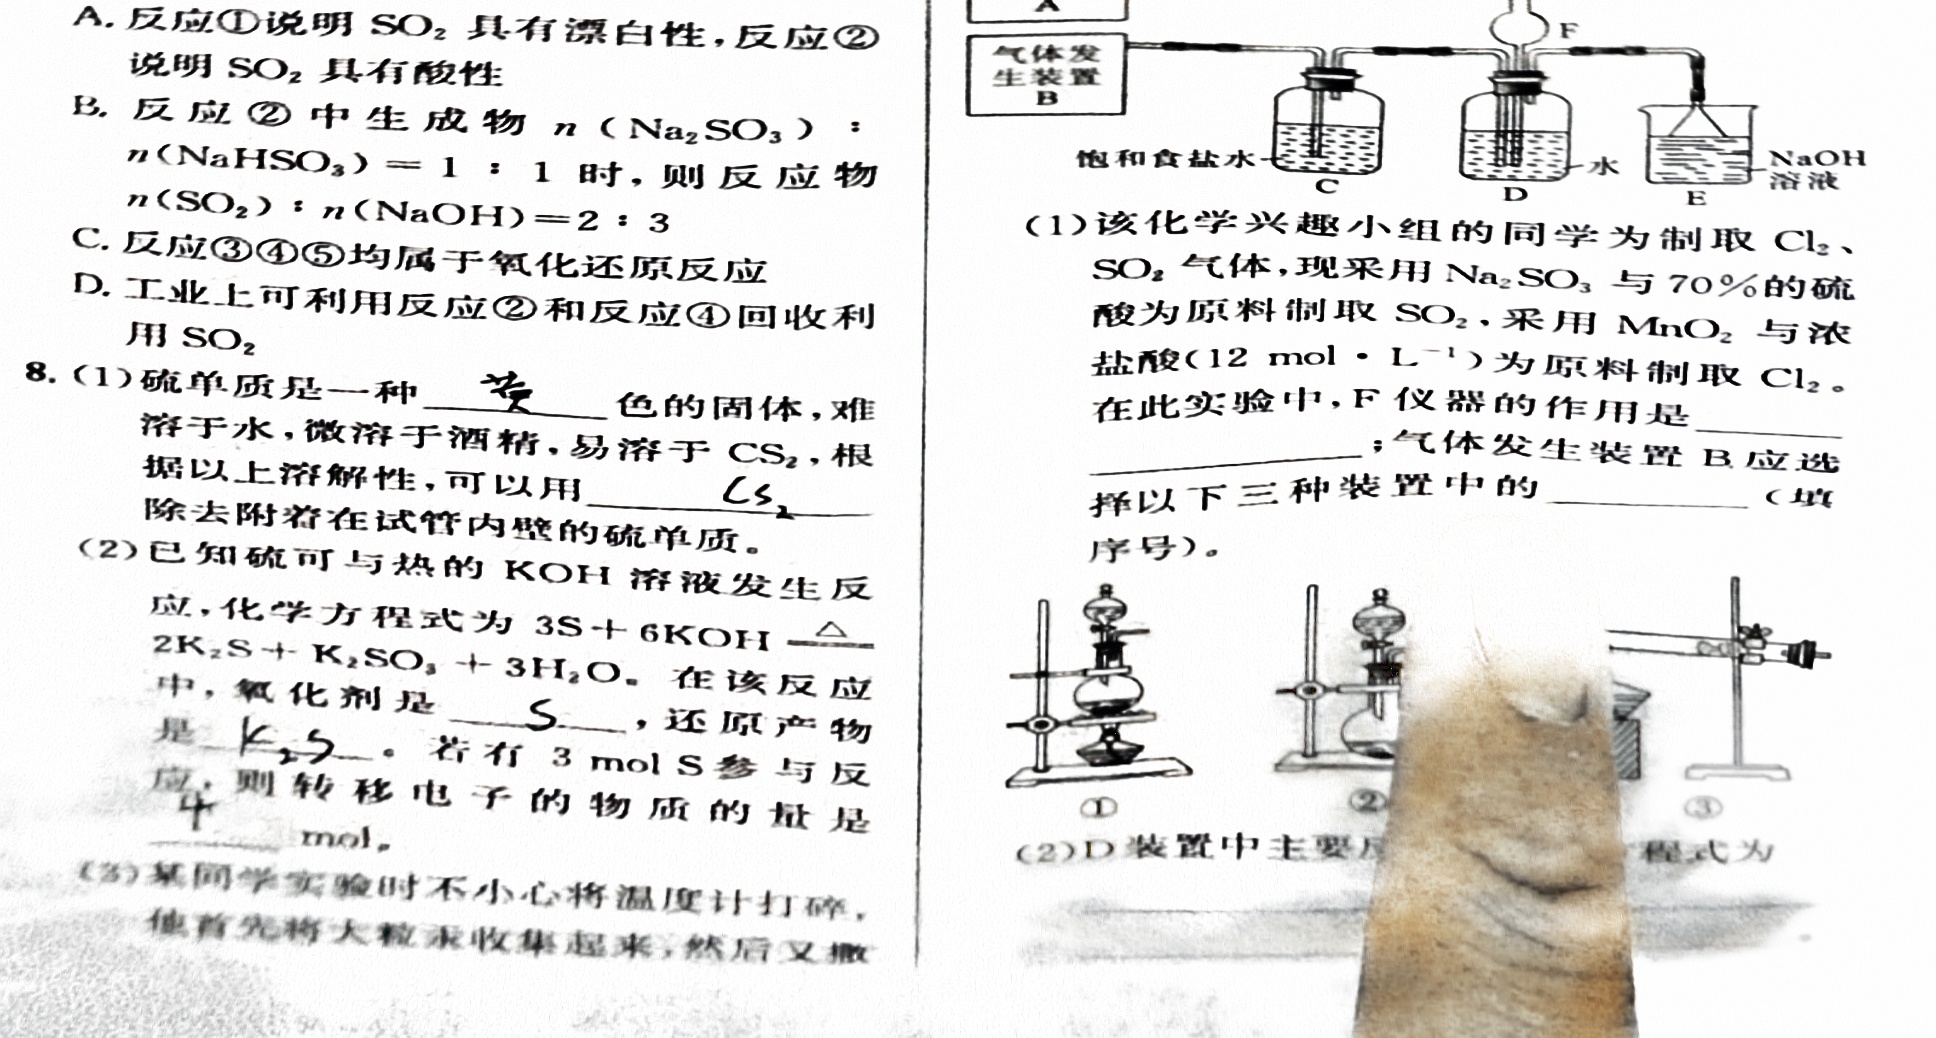 A. 反应①说明 SO₂ 具有漂白性,反应②
说明 SO₂ 具有酸性
B. 反应②中生成物 n(Na₂SO₃):
n(NaHSO₃)=1:1 时,则反应物
n(SO₂):n(NaOH)=2:3
C. 反应③④⑤均属于氧化还原反应
D. 工业上可利用反应②和反应④回收利
用 SO₂
8. (1)硫单质是一种 黄 色的固体,难
溶于水,微溶于酒精,易溶于 CS₂,根
据以上溶解性,可以用 CS₂
除去附着在试管内壁的硫单质。
(2)已知硫可与热的 KOH 溶液发生反
应,化学方程式为 3S+6KOH △
2K₂S+K₂SO₃+3H₂O。在该反应
中,氧化剂是 S ,还原产物
是 K₂S 。若有 3 mol S 参与反
应,则转移电子的物质的量是
4 mol。
(3)某同学实验时不小心将温度计打碎,
他首先将大粒汞收集起来,然后又撒
A
气体发
生装置
B
F
饱和食盐水
水
NaOH
溶液
C
D
E
(1)该化学兴趣小组的同学为制取 Cl₂、
SO₂ 气体,现采用 Na₂SO₃ 与 70%的硫
酸为原料制取 SO₂,采用 MnO₂ 与浓
盐酸(12 mol·L⁻¹)为原料制取 Cl₂。
在此实验中,F 仪器的作用是
;气体发生装置 B 应选
择以下三种装置中的 (填
序号)。
① ② ③
(2)D 装置中主要 程式为